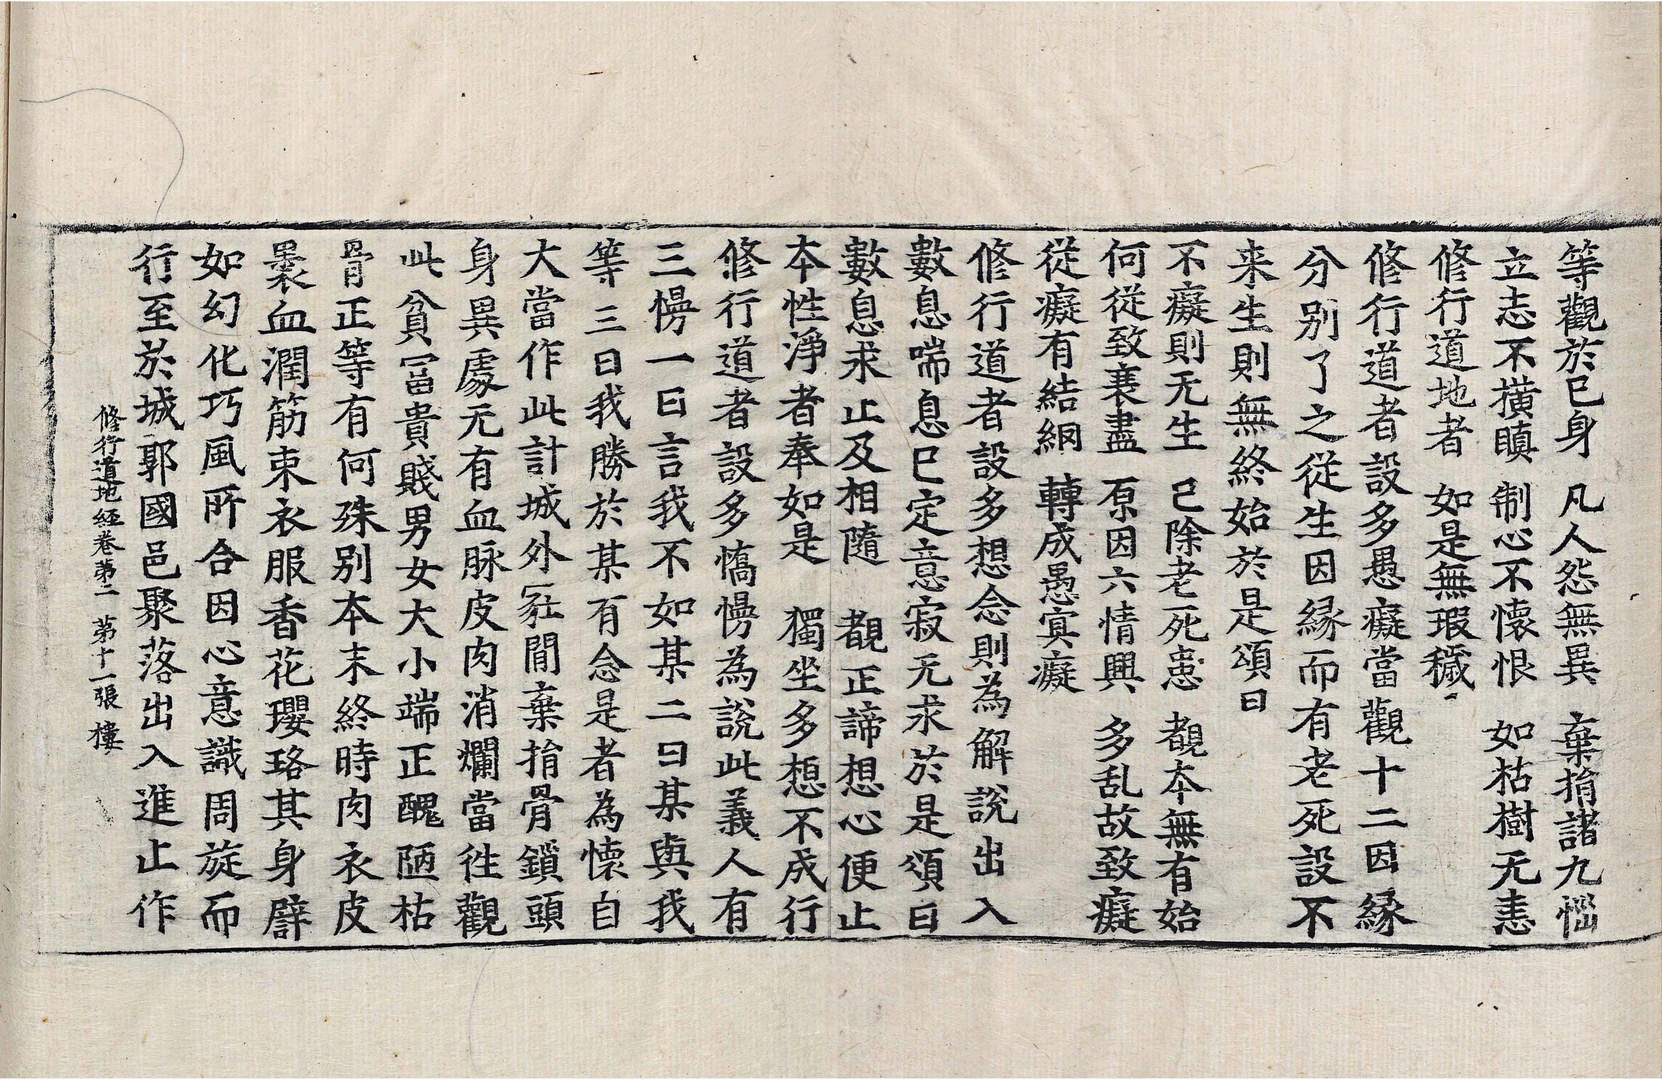 等觀於已身　凡人怨無異　棄捐諸九惱
立志不橫瞋　制心不懷恨　如枯樹无恚
修行道地者　如是無瑕穢
修行道者設多愚癡當觀十二因縁
分別了之從生因縁而有老死設不
来生則無終始於是頌曰
不癡則无生　已除老死患　覩本無有始
何從致衰盡　原因六情興　多乱故致癡
從癡有結網　轉成愚㝠癡
修行道者設多想念則為解說出入
數息喘息已定意寂无求於是頌曰
數息求止及相隨　覩正諦想心便止
本性淨者奉如是　獨坐多想不成行
修行道者設多憍慢為說此義人有
三慢一曰言我不如某二曰某與我
等三曰我勝於某有念是者為懷自
大當作此計城外冢間棄捐骨鎖頭
身異處无有血脉皮肉消爛當往觀
此貧冨貴賤男女大小端正醜陋枯
骨正等有何殊別本末終時肉衣皮
裹血潤筋束衣服香花瓔珞其身譬
如幻化巧風所合因心意識周旋而
行至於城郭國邑聚落出入進止作
修行道地経卷第二　第十一張　樓